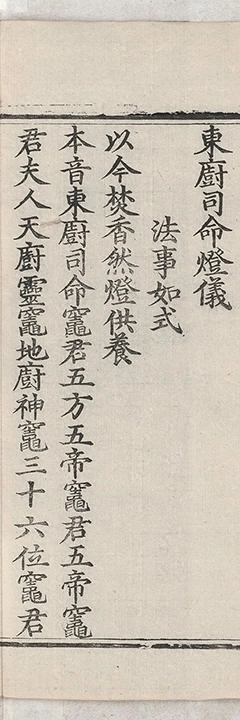 東廚司命燈儀
法事如式
以今焚香然燈供養
本音東廚司命竈君五方五帝竈君五帝竈
君夫人天廚靈竈地廚神竈三十六位竈君